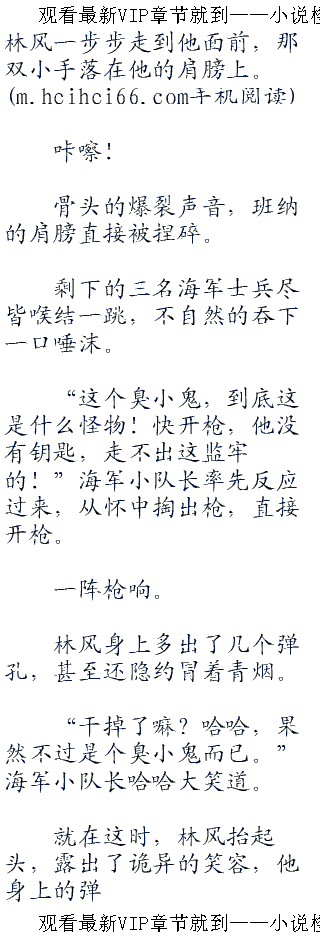 观看最新VIP章节就到——小说检
林风一步步走到他面前，那
双小手落在他的肩膀上。
(m.hcihci66.com手机阅读)
咔嚓！
骨头的爆裂声音，班纳
的肩膀直接被捏碎。
剩下的三名海军士兵尽
皆喉结一跳，不自然的吞下
一口唾沫。
“这个臭小鬼，到底这
是什么怪物！快开枪，他没
有钥匙，走不出这监牢
的！”海军小队长率先反应
过来，从怀中掏出枪，直接
开枪。
一阵枪响。
林风身上多出了几个弹
孔，甚至还隐约冒着青烟。
“干掉了嘛？哈哈，果
然不过是个臭小鬼而已。”
海军小队长哈哈大笑道。
就在这时，林风抬起
头，露出了诡异的笑容，他
身上的弹
观看最新VIP章节就到——小说检